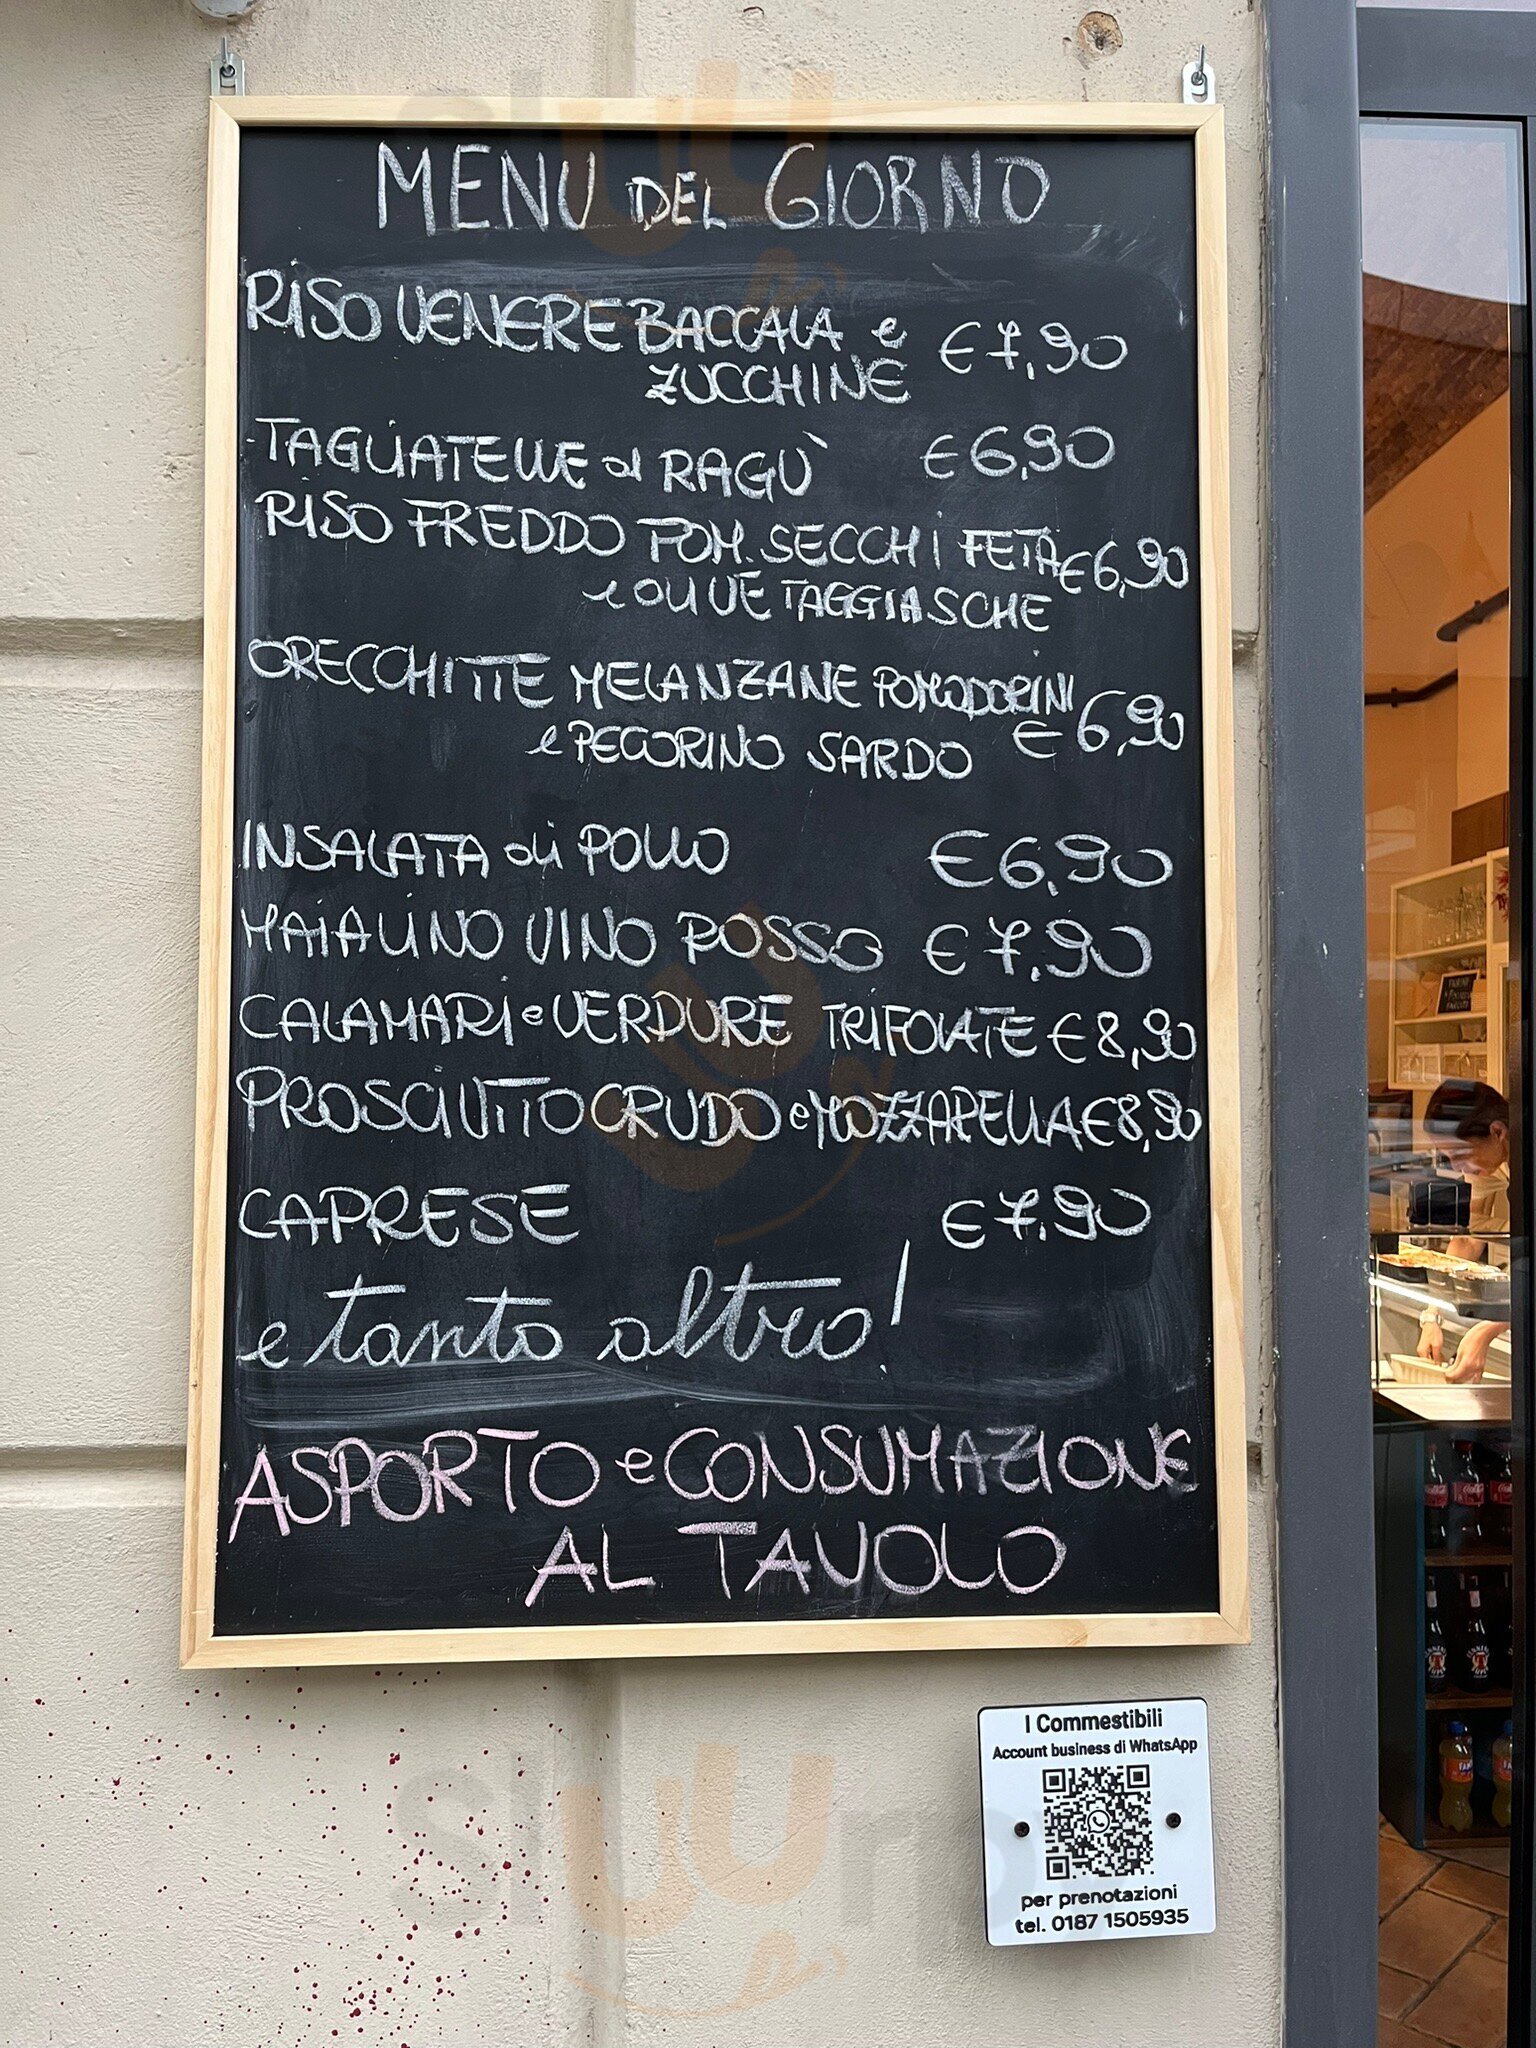 MENU DEL GIORNO
RISO VENERE BACCALA e € 7,90
ZUCCHINE
TAGLIATELLE al RAGÙ € 6,90
RISO FREDDO POM. SECCHI FETA € 6,90
e OLIVE TAGGIASCHE
ORECCHITTE MELANZANE POMODORINI
e PECORINO SARDO € 6,90
INSALATA di POLLO € 6,90
MAIALINO VINO ROSSO € 7,90
CALAMARI e VERDURE TRIFOLATE € 8,90
PROSCIUTTO CRUDO e MOZZARELLA € 8,90
CAPRESE € 7,90
e tanto altro!
ASPORTO e CONSUMAZIONE
AL TAVOLO
I Commestibili
Account business di WhatsApp
per prenotazioni
tel. 0187 1505935
sluurpy